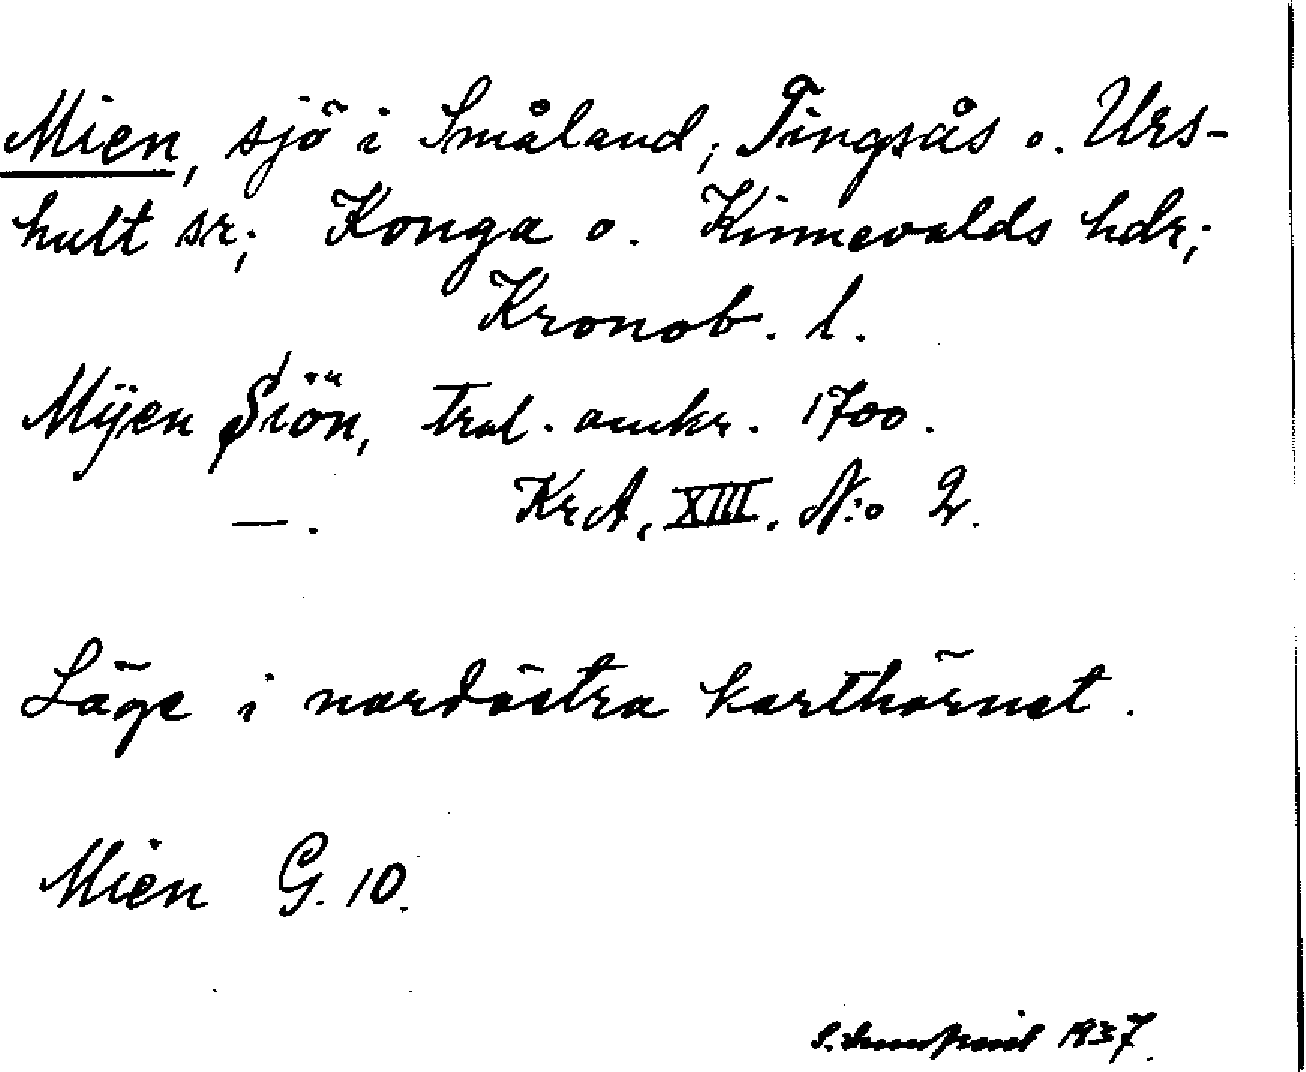 Mien, sjö i Småland; Tingsås o. Urs-
hult sr; Konga o. Kinnevalds hdr;
Kronob. l.
Mÿen Siön, trol. omkr. 1700.
—. KrA, XIII. N:o 2.
Läge i nordöstra karthörnet.
Mien G. 10.
1937.